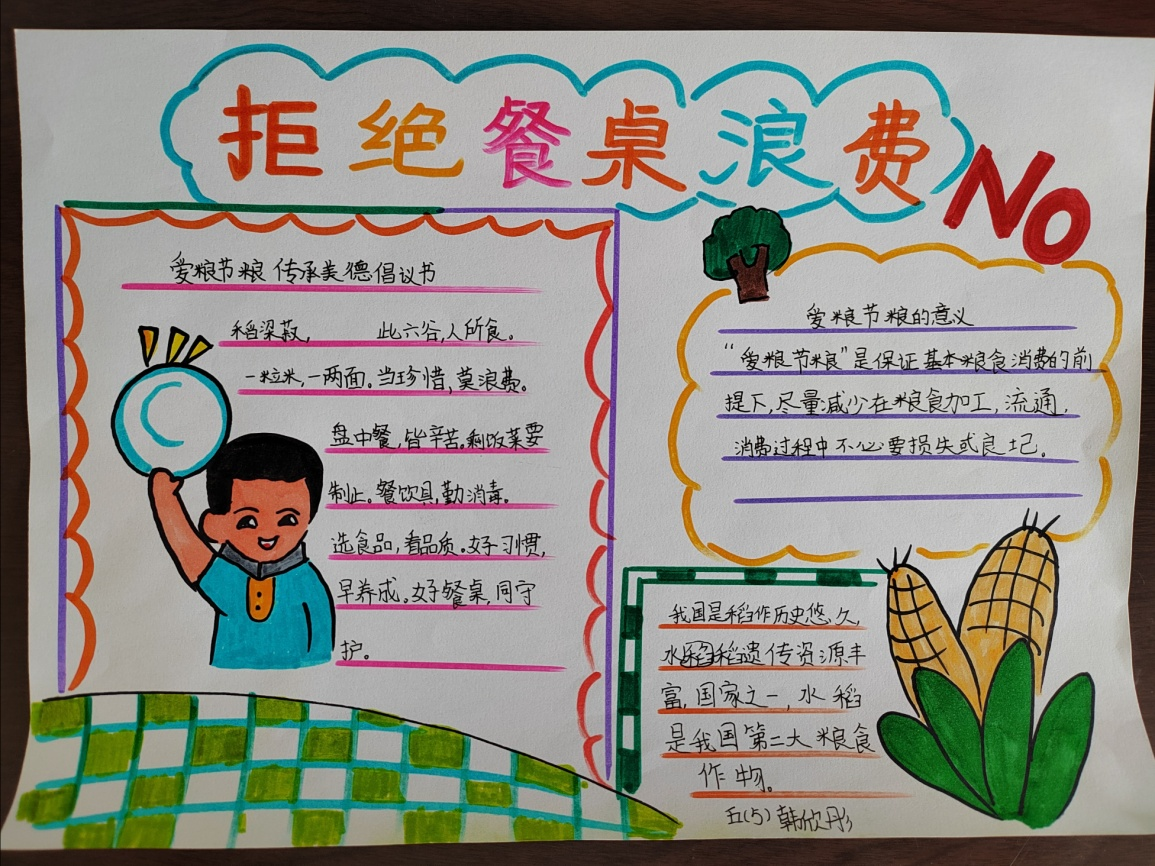 拒绝餐桌浪费
NO
爱粮节粮 传承美德倡议书
稻梁菽, 此六谷,人所食。
一粒米,一两面。当珍惜,莫浪费。
盘中餐,皆辛苦。剩饭菜要
制止。餐饮具,勤消毒。
选食品,看品质。好习惯,
早养成。好餐桌,同守
护。
爱粮节粮的意义
“爱粮节粮”是保证基本粮食消费的前
提下,尽量减少在粮食加工,流通,
消费过程中不必要损失或良圮。
我国是稻作历史悠久,
水稻遗传资源丰
富,国家之一,水稻
是我国第二大粮食
作物。
五(5)韩欣彤